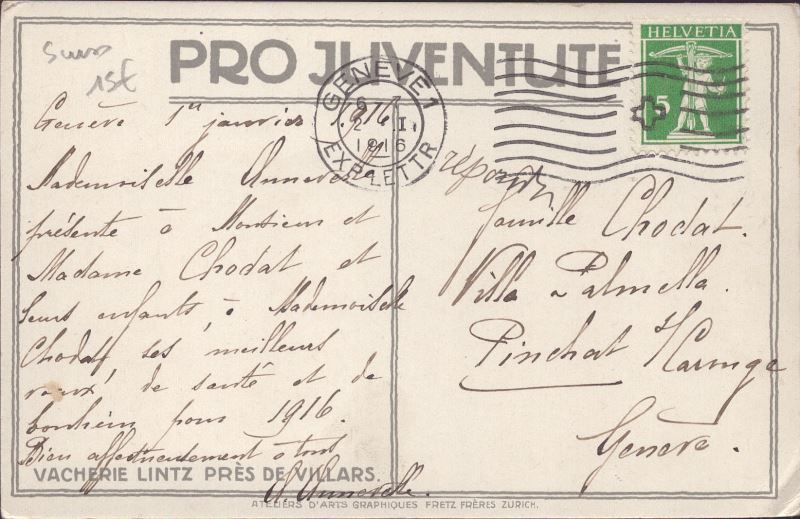 Suiss
15f
PRO JUVENTUTE
HELVETIA
5
GENÈVE 1
2 I
1916
EXP. LETTR
Genève 1er janvier 1916
répondu
Mademoiselle Annevelle
présente à Monsieur et
Madame Chodat et
leurs enfants, à Mademoiselle
Chodat ses meilleurs
vœux de santé et de
bonheur pour 1916.
Bien affectueusement à tous
A. Annevelle.
famille Chodat.
Villa Palmella.
Pinchat s/ Carouge
Genève.
VACHERIE LINTZ PRÈS DE VILLARS.
ATELIERS D'ARTS GRAPHIQUES FRETZ FRÈRES ZURICH.